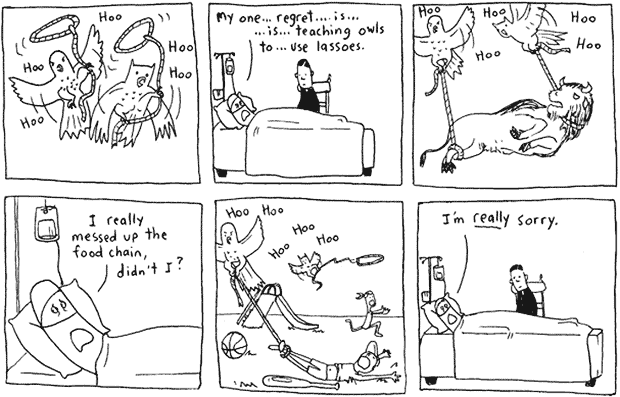 Hoo
Hoo
Hoo
Hoo
Hoo
My one... regret.... is...
...is... teaching owls
to... use lassoes.
Hoo
Hoo
Hoo
Hoo
I really
messed up the
food chain,
didn't I?
Hoo
Hoo
Hoo
Hoo
I'm really sorry.